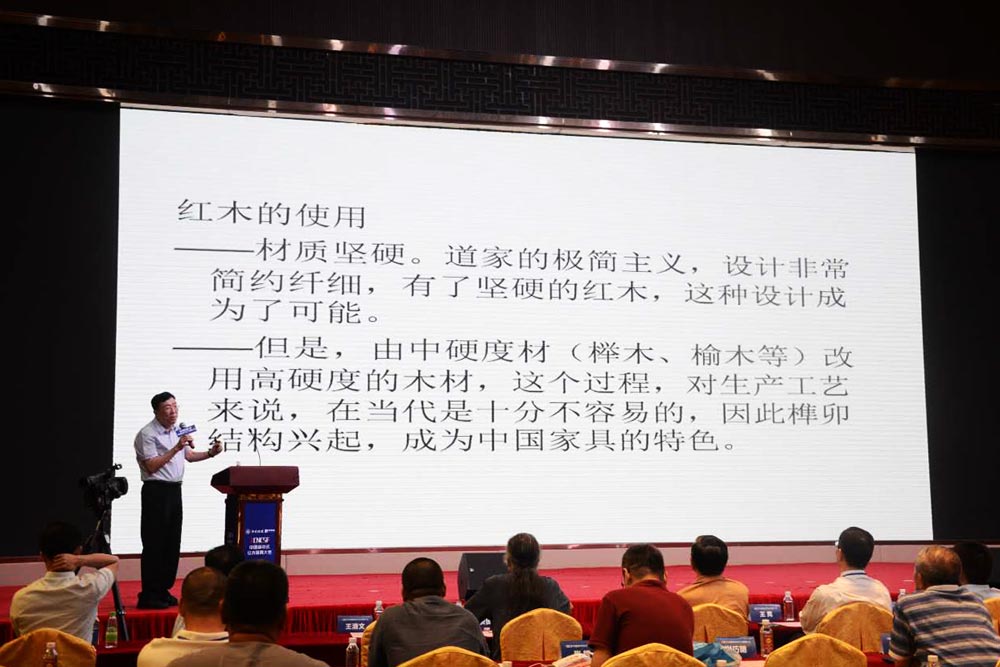 红木的使用
——材质坚硬。道家的极简主义，设计非常
简约纤细，有了坚硬的红木，这种设计成
为了可能。
——但是，由中硬度材（榉木、榆木等）改
用高硬度的木材，这个过程，对生产工艺
来说，在当代是十分不容易的，因此榫卯
结构兴起，成为中国家具的特色。